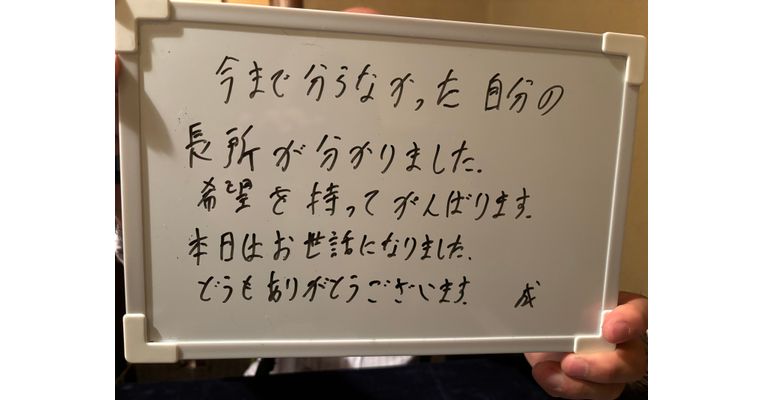 今まで分らなかった自分の
長所が分かりました.
希望を持ってがんばります.
本日はお世話になりました.
どうもありがとうございます. 成